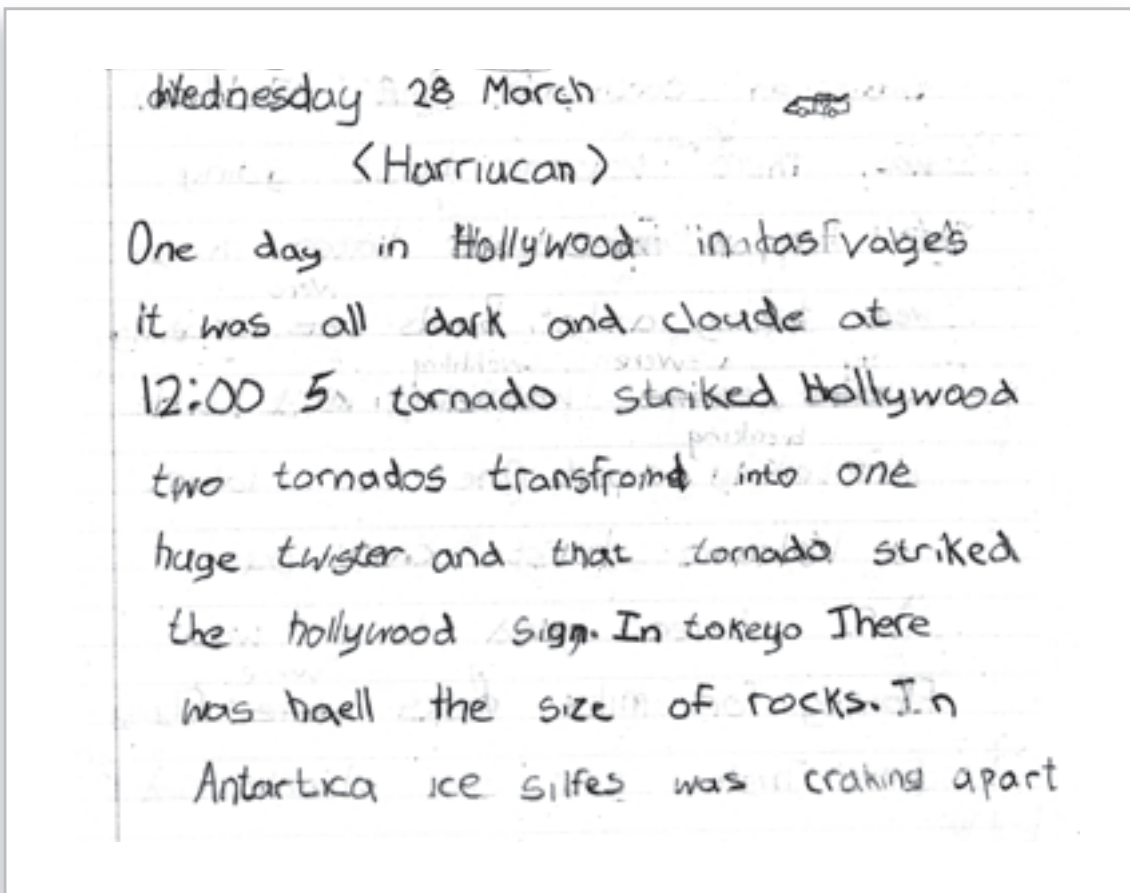 Wednesday 28 March
<Harriucan>
One day in Hollywood in las vages
it was all dark and cloude at
12:00 5 tornado striked Hollywood
two tornados transfromd into one
huge twister and that tornado striked
the hollywood sign. In tokeyo There
was haell the size of rocks. In
Antartica ice silfes was craking apart